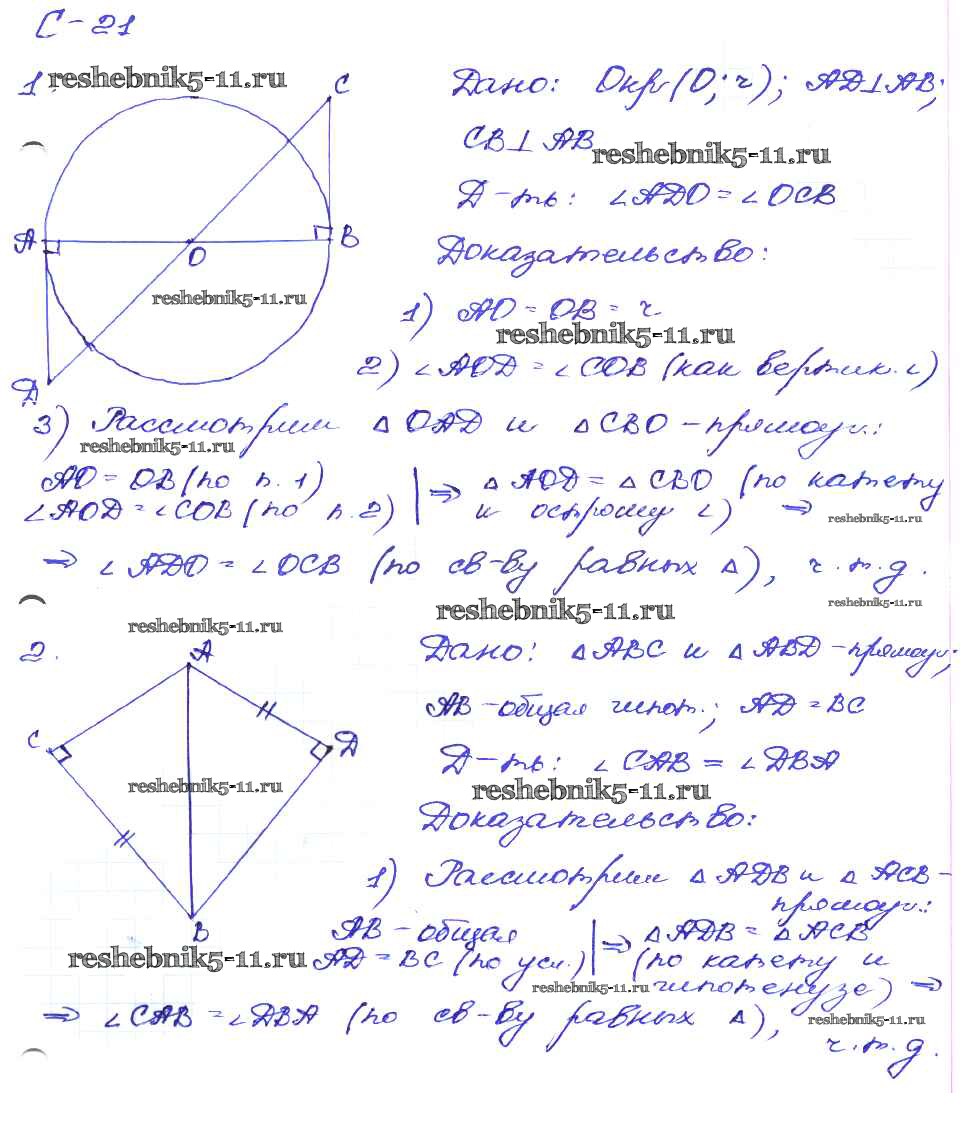 С-21
1.
reshebnik5-11.ru
C
Дано: Окр(О; r); AD⊥AB;
CB⊥AB
reshebnik5-11.ru
Д-ть: ∠ADO = ∠OCB
A
O
B
Доказательство:
reshebnik5-11.ru
1) AO = OB = r
reshebnik5-11.ru
D
2) ∠AOD = ∠COB (как вертик. ∠)
3) Рассмотрим △OAD и △CBO - прямоуг.:
reshebnik5-11.ru
AO = OB (по п. 1) | ⇒ △AOD = △CBO (по катету
∠AOD = ∠COB (по п. 2) | и острому ∠) ⇒
reshebnik5-11.ru
⇒ ∠ADO = ∠OCB (по св-ву равных △), ч.т.д.
reshebnik5-11.ru
reshebnik5-11.ru
reshebnik5-11.ru
2.
A
Дано: △ABC и △ABD - прямоуг.;
AB - общая гипот.; AD = BC
C
D
Д-ть: ∠CAB = ∠DBA
reshebnik5-11.ru
reshebnik5-11.ru
Доказательство:
1) Рассмотрим △ADB и △ACB -
прямоуг.:
B
AB - общая | ⇒ △ADB = △ACB
reshebnik5-11.ru
AD = BC (по усл.) | (по катету и
reshebnik5-11.ru
гипотенузе) ⇒
⇒ ∠CAB = ∠DBA (по св-ву равных △),
reshebnik5-11.ru
ч.т.д.